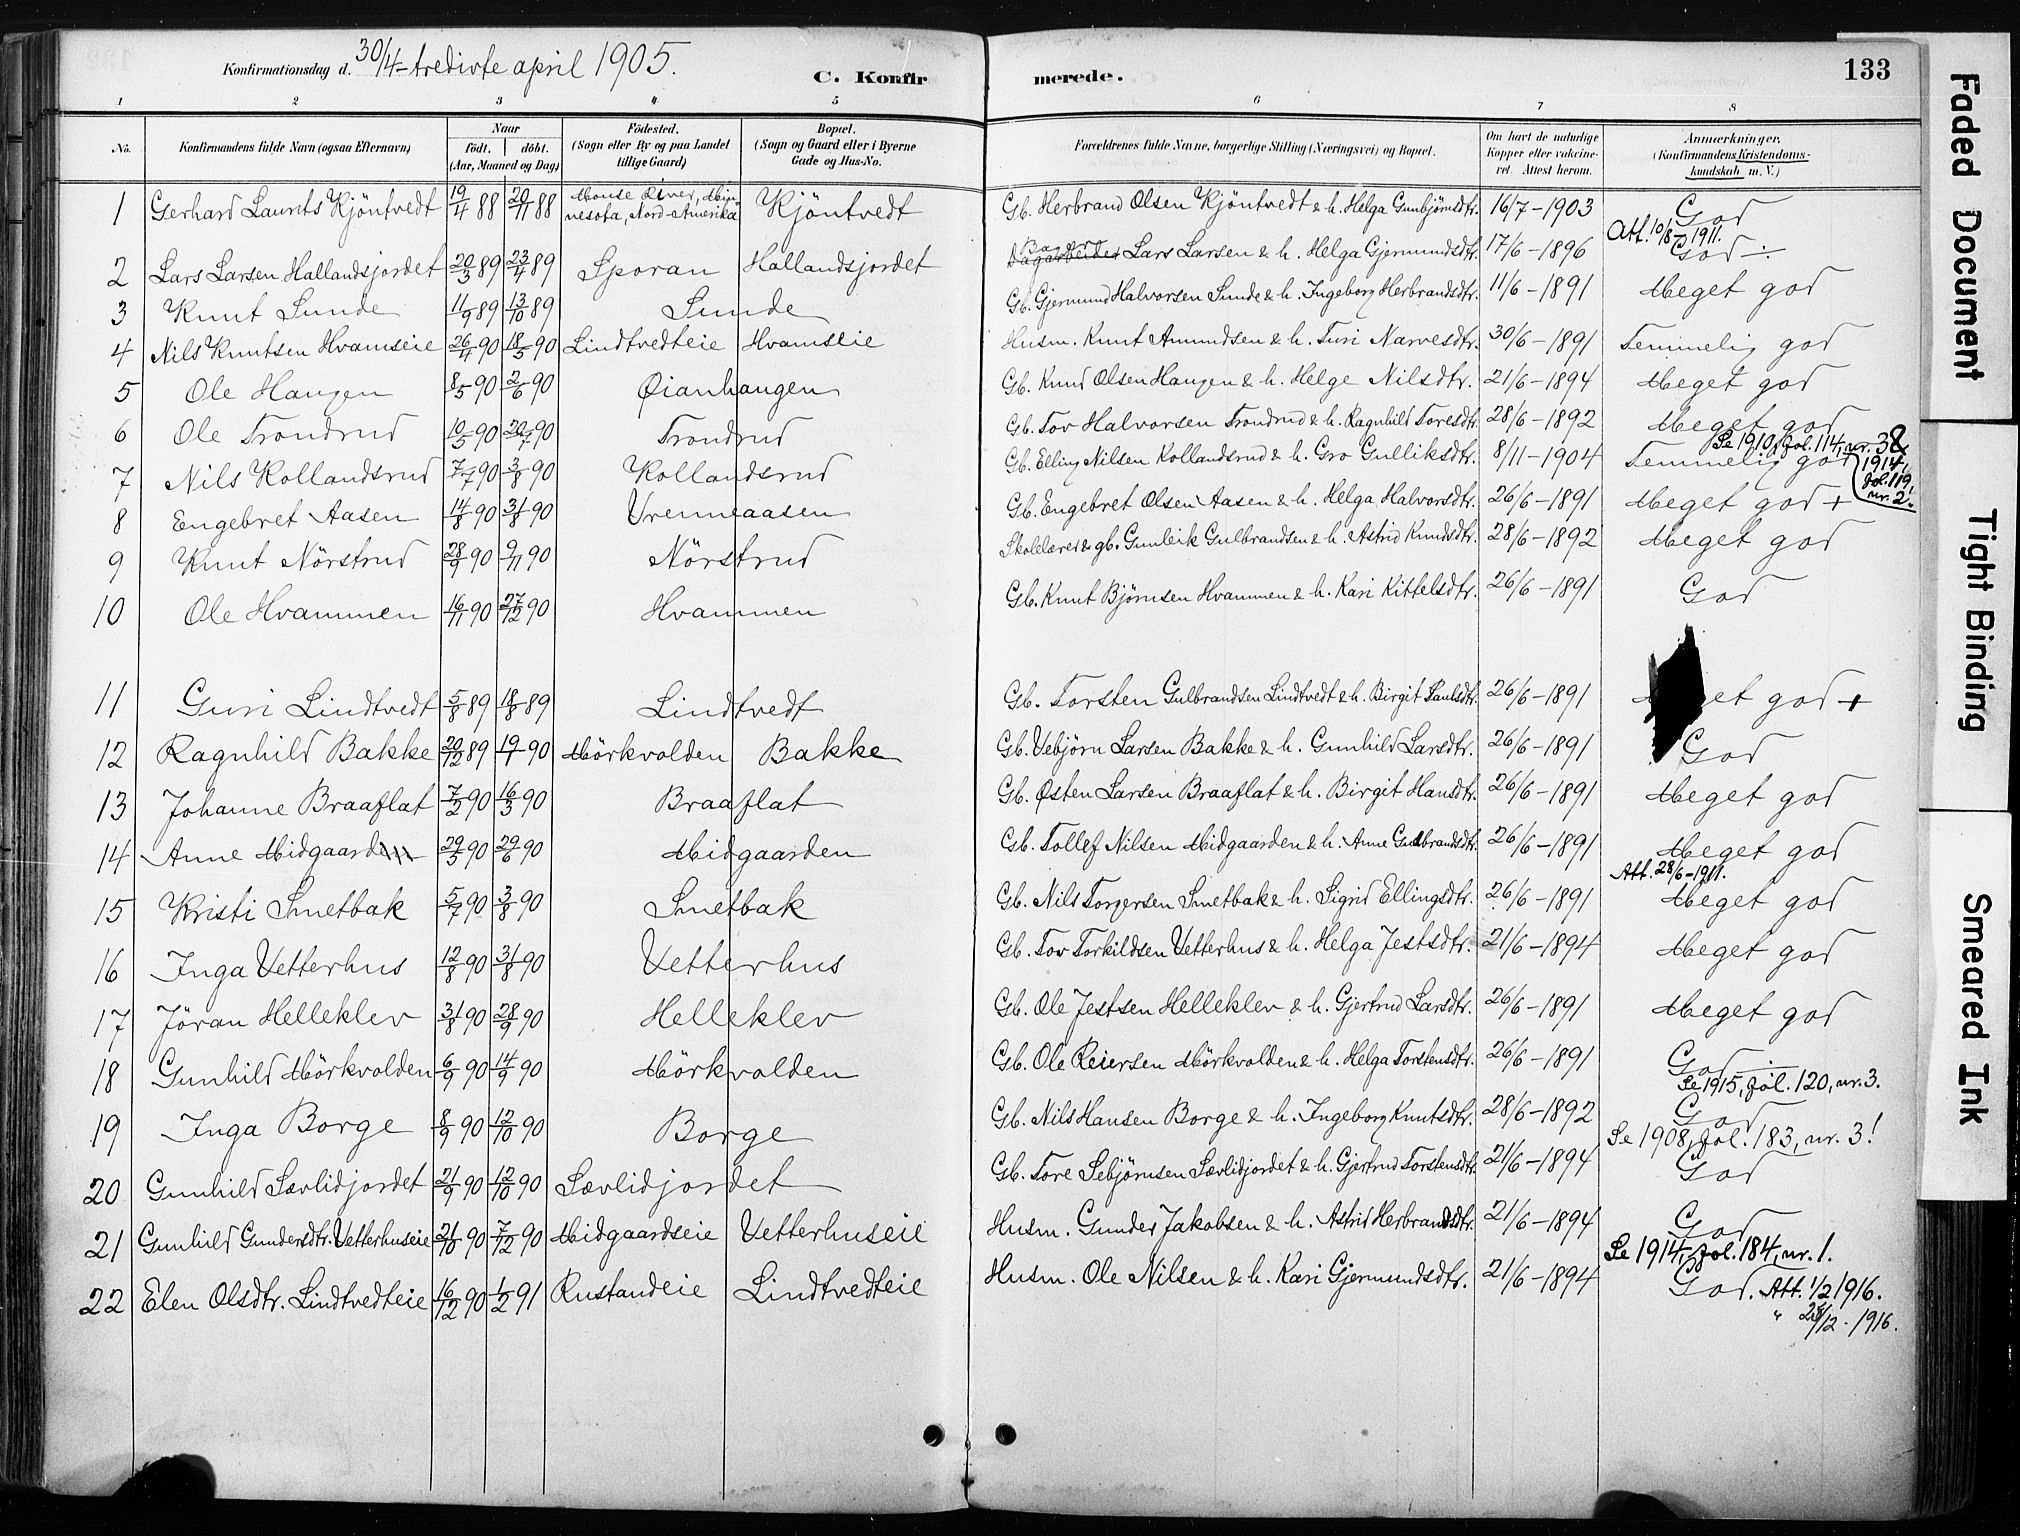 Konfirmationsdag d. 30/4 - tredivte april 1905. C. Konfirmerede. 133
1 2 3 4 5 6 7 8
No. Konfirmandens fulde Navn (ogsaa Efternavn) Naar födt. döbt. (Aar, Maaned og Dag) Födested. (Sogn eller By og paa Landet tillige Gaard) Bopæl. (Sogn og Gaard eller i Byerne Gade og Hus-No. Forældrenes fulde Navne, borgerlige Stilling (Næringsvei) og Bopæl. Om havt de naturlige Kopper eller vakcineret. Attest herom. Anmærkninger. (Konfirmandens Kristendomskundskab m. V.)
1 Gerhard Laurits Kjöntvedt 19/4 88 20/11 88 Mouse River, Minnesota, Nord-Amerika Kjöntvedt Gb. Herbrand Olsen Kjöntvedt & h. Helga Gunbjörnsdtr. 16/7-1903 God
Att. 10/8-1911.
2 Lars Larsen Hallandsjordet 20/3 89 23/4 89 Sporan Hallandsjordet Dagarbeider Lars Larsen & h. Helga Gjermundsdtr. 17/6-1896 God
3 Knut Sunde 11/9 89 13/10 89 Sunde Gb. Gjermund Halvorsen Sunde & h. Ingeborg Herbrandsdtr. 11/6-1891 Meget god
4 Nils Knutsen Hvamseie 26/4 90 18/5 90 Lindtvedteie Hvamseie Husm. Knut Amundsen & h. Turi Narvesdtr. 30/6-1891 Temmelig god
5 Ole Haugen 8/5 90 2/6 90 Øianhaugen Gb. Knud Olsen Haugen & h. Helge Nilsdtr. 21/6-1894 Meget god
6 Ole Trondrud 10/5 90 20/7 90 Trondrud Gb. Tov Halvorsen Trondrud & h. Ragnhild Toresdtr. 28/6-1892 Meget god
Se 1910, fol. 114, nr. 38
7 Nils Kollandsrud 7/7 90 3/8 90 Kollandsrud Gb. Elling Nilsen Kollandsrud & h. Gro Gulliksdtr. 8/11-1904 Temmelig god 1914, fol. 119, nr. 2.
8 Engebret Aasen 14/8 90 31/8 90 Vrenneaasen Gb. Engebret Olsen Aasen & h. Helga Halvorsdtr. 26/6-1891 Meget god +
9 Knut Nörstrud 28/9 90 9/11 90 Nörstrud Skolelærer & gb. Gunleik Gulbrandsen & h. Astrid Knudsdtr. 28/6-1892 Meget god
10 Ole Hvammen 16/11 90 27/12 90 Hvammen Gb. Knut Bjömsen Hvammen & h. Kari Kittelsdtr. 26/6-1891 God
11 Guri Lindtvedt 5/8 89 18/8 89 Lindtvedt Gb. Torsten Gulbrandsen Lindtvedt & h. Birgit Paulsdtr. 26/6-1891 Meget god +
12 Ragnhild Bakke 20/12 89 19/1 90 Mörkvolden Bakke Gb. Vebjörn Larsen Bakke & h. Gunhild Larsdtr. 26/6-1891 God
13 Johanne Braaflat 7/2 90 16/3 90 Braaflat Gb. Østen Larsen Braaflat & h. Birgit Hansdtr. 26/6-1891 Meget god
14 Anne Midgaarden 29/5 90 29/6 90 Midgaarden Gb. Tollef Nilsen Midgaarden & h. Anne Gulbrandsdtr. 26/6-1891 Meget god
Att. 28/6-1911.
15 Kristi Smetbak 5/7 90 3/8 90 Smetbak Gb. Nils Torgersen Smetbak & h. Sigrid Ellingsdtr. 26/6-1891 Meget god
16 Inga Vetterhus 12/8 90 31/8 90 Vetterhus Gb. Tov Torkildsen Vetterhus & h. Helga Jestsdtr. 21/6-1894 Meget god
17 Jöran Helleklev 31/8 90 28/9 90 Helleklev Gb. Ole Jestsen Helleklev & h. Gjertrud Larsdtr. 26/6-1891 Meget god
18 Gunhild Mörkvolden 6/9 90 14/9 90 Mörkvolden Gb. Ole Reiersen Mörkvolden & h. Helga Torstensdtr. 26/6-1891 God
Se 1915, fol. 120, nr. 3.
19 Inga Borge 8/9 90 12/10 90 Borge Gb. Nils Hansen Borge & h. Ingeborg Knutsdtr. 28/6-1892 God
Se 1908, fol. 183, nr. 3!
20 Gunhild Sævlidjordet 21/9 90 12/10 90 Sævlidjordet Gb. Tore Sebjörnsen Sævlidjordet & h. Gjertrud Torstensdtr. 21/6-1894 God
21 Gunhild Gundersdtr. Vetterhuseie 21/10 90 7/12 90 Midgaardseie Vetterhuseie Husm. Gunder Jakobsen & h. Astrid Herbrandsdtr. 21/6-1894 God
Se 1914, fol. 184, nr. 1.
22 Elen Olsdtr. Lindtvedteie 16/12 90 1/2 91 Rustandeie Lindtvedteie Husm. Ole Nilsen & h. Kari Gjermundsdtr. 21/6-1894 God. Att. 1/2 1916.
" /12 - 1916.
Faded Document
Tight Binding
Smeared Ink